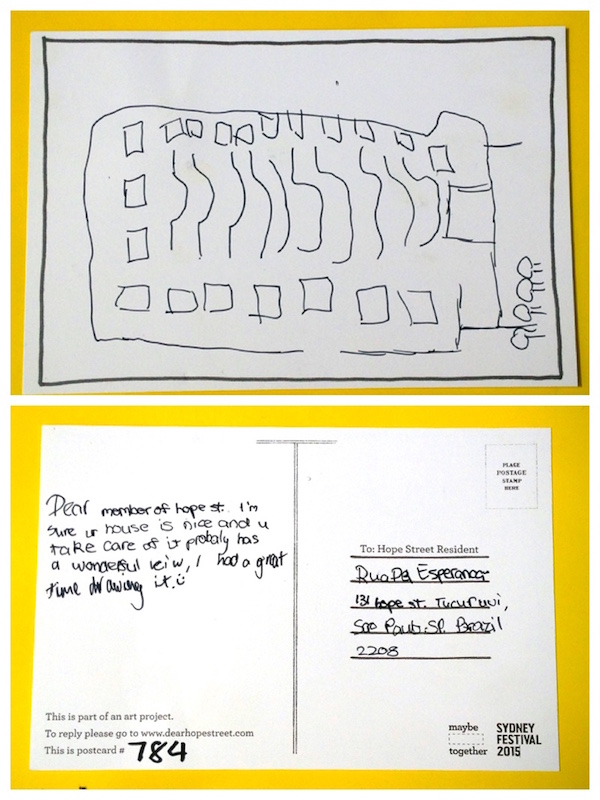 Dear member of hope st. I'm
sure ur house is nice and u
take care of it probaly has
a wonderful veiw, I had a great
time drawing it.
This is part of an art project.
To reply please go to www.dearhopestreet.com
This is postcard # 784
PLACE
POSTAGE
STAMP
HERE
To: Hope Street Resident
Rua Da Esperanca
131 hope st. Tucuruvi,
Sao Paulo-SP. Brazil
2208
maybe
together
SYDNEY
FESTIVAL
2015